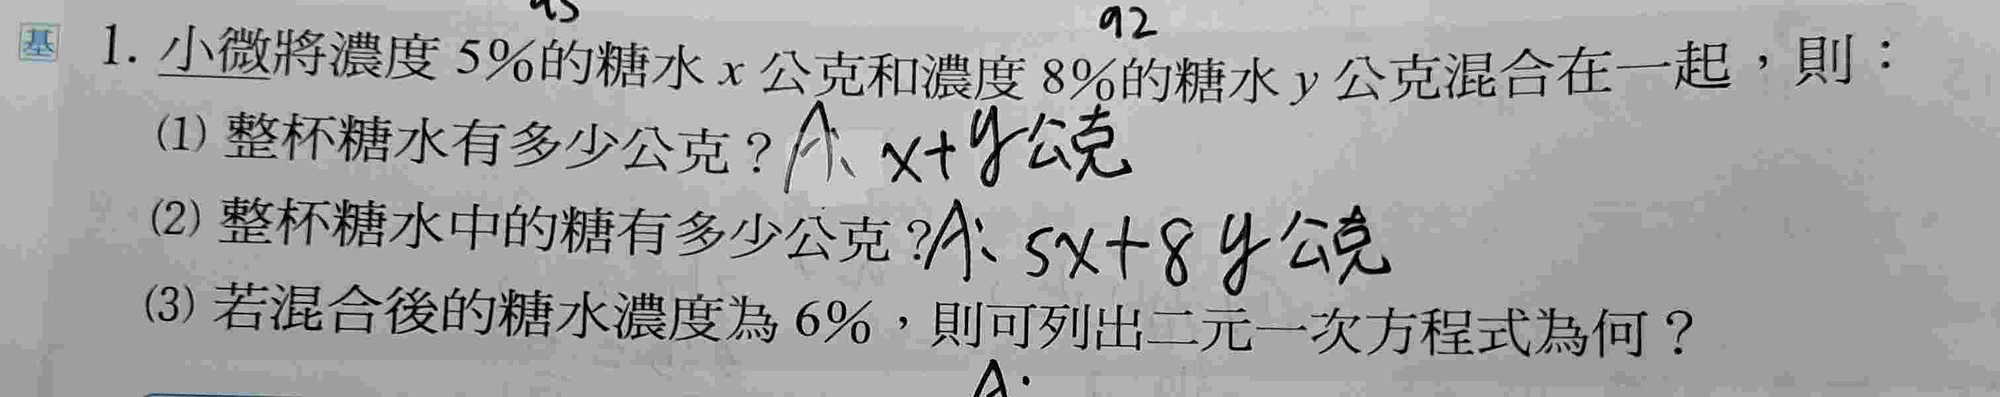 95
92
基 1. 小微將濃度 5%的糖水 x 公克和濃度 8%的糖水 y 公克混合在一起，則：
(1) 整杯糖水有多少公克？A: x+y公克
(2) 整杯糖水中的糖有多少公克？A: 5x+8y公克
(3) 若混合後的糖水濃度為 6%，則可列出二元一次方程式為何？
A: